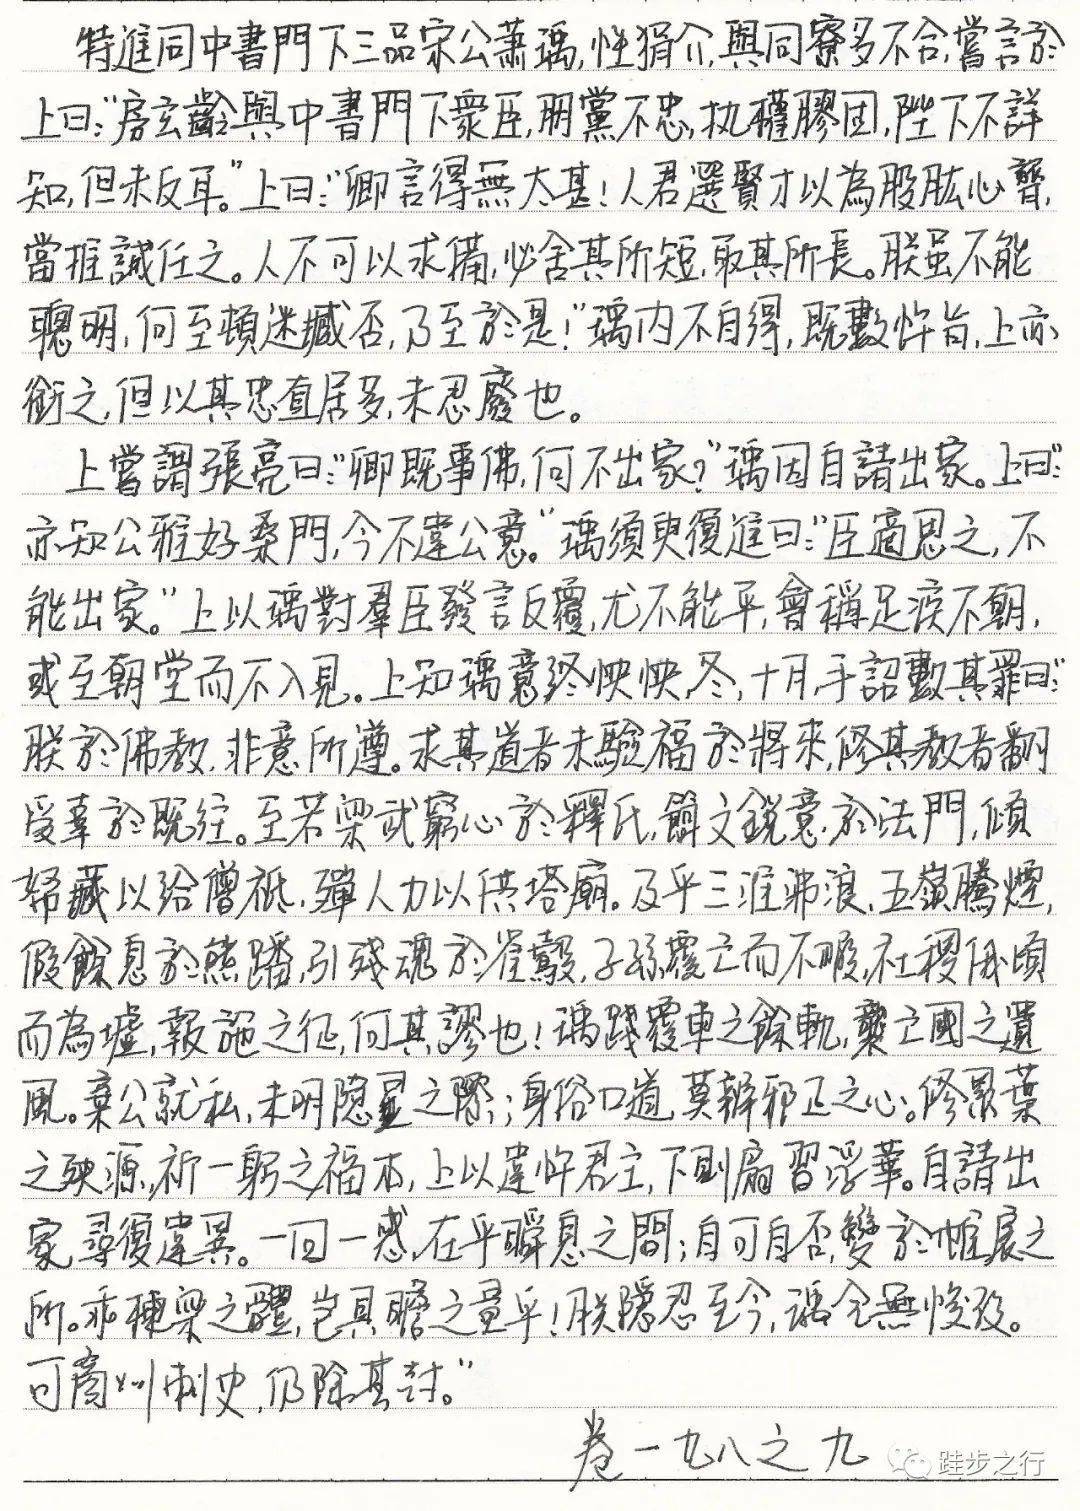 特進同中書門下三品宋公蕭瑀,性狷介,與同寮多不合,嘗言於
上曰:“房玄齡與中書門下衆臣,朋黨不忠,执權膠固,陛下不詳
知,但未反耳。”上曰:“卿言得無太甚!人君選賢才以為股肱心膂,
當推誠任之。人不可以求備,必舍其所短,取其所長。朕虽不能
聰明,何至頓迷臧否,乃至於是!”瑀内不自得,既數忤旨,上亦
銜之,但以其忠直居多,未忍廢也。
上嘗謂張亮曰:“卿既事佛,何不出家?”瑀因自請出家。上曰:“
亦知公雅好桑門,今不違公意。”瑀須臾復進曰:“臣適思之,不
能出家。”上以瑀對羣臣發言反覆,尤不能平,會稱足疾不朝,
或至朝堂而不入見。上知瑀意終怏怏,冬,十月,手詔數其罪曰:“
朕於佛教,非意所遵。求其道者未驗福於將來,修其教者翻
受辜於既往。至若梁武窮心於釋氏,簡文銳意於法門,傾
帑藏以給僧祇,殫人力以供塔廟。及乎三淮沸浪,五嶺騰煙,
假餘息於熊蹯,引殘魂於雀鷇,子孫覆亡而不暇,社稷俄頃
而為墟,報施之征,何其謬也!瑀踐覆車之餘軌,襲亡國之遺
風。棄公就私,未明隐顯之際;身俗口道,莫辨邪正之心。修累葉
之殃源,祈一躬之福本,上以違忤君主,下則扇習浮華。自請出
家,尋復違異。一回一惑,在乎瞬息之間;自可自否,變於帷扆之
所。乖棟梁之體,豈具瞻之量乎!朕隱忍至今,瑀全無悛改。
可商州刺史,仍除其封。”
卷一九八之九
跬步之行